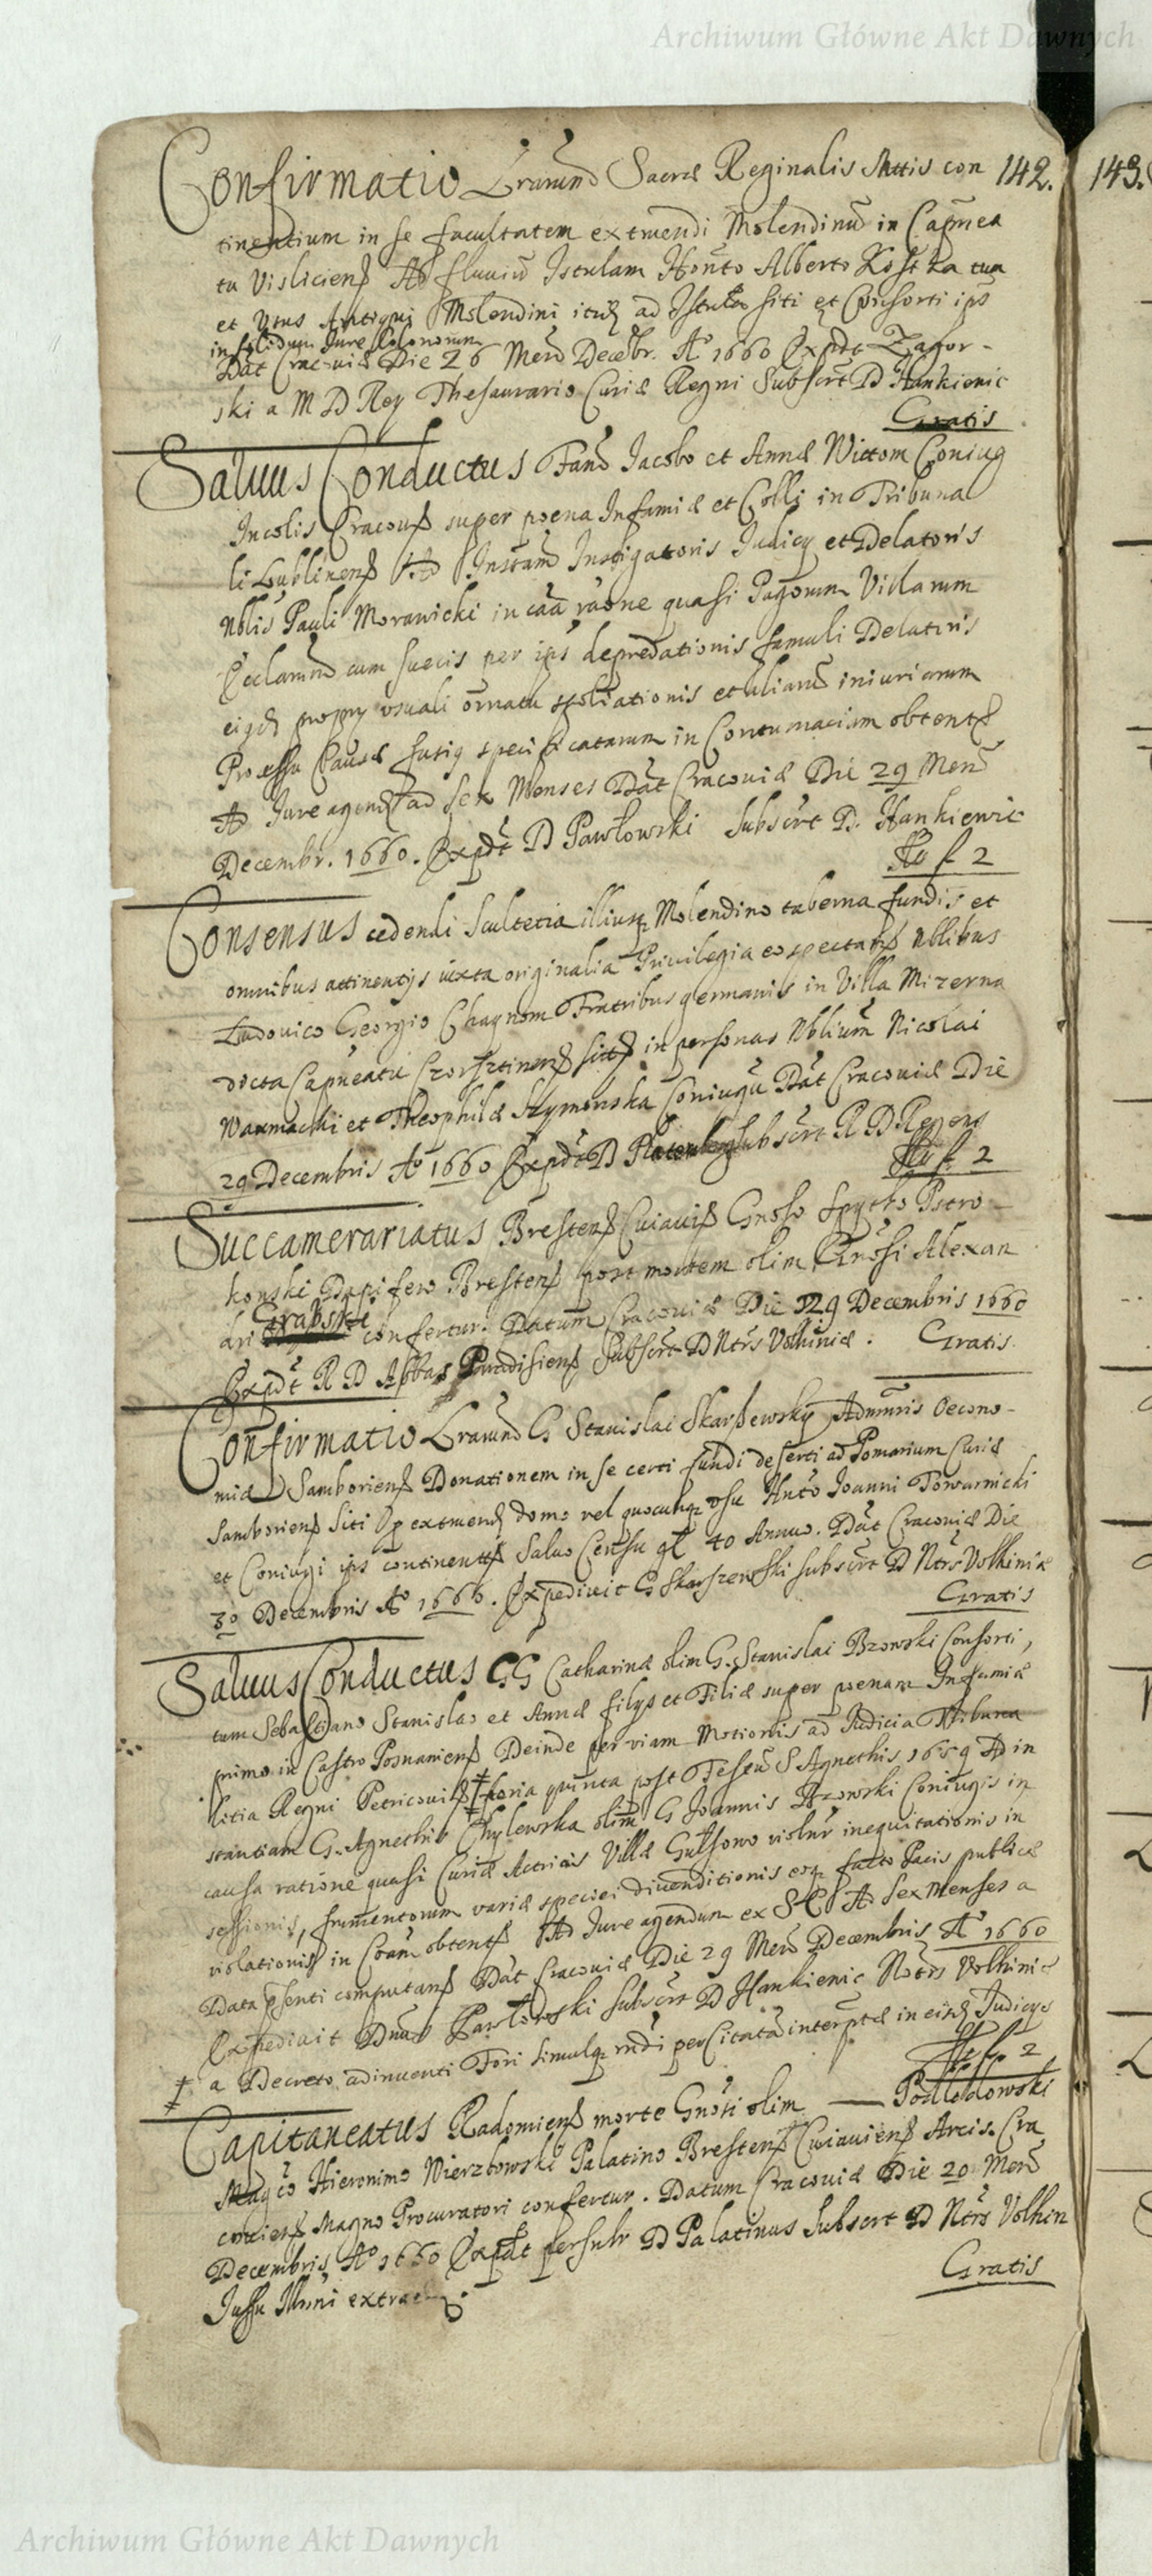 Archiwum Główne Akt Dawnych
Confirmatio Lrarum Sacræ Reginalis Mttis con 142. 143.
tinentium in se facultatem extruendi Molendinū in Capnea
tu Visliciens Ad fluviū Istulam Honto Alberto Kostka tum
et Usus Antiqui Molendini ad Istula siti et Consorti ips
in solidum Jure Colonorum
Dat Cracoviæ Die 26 Mens Decebr. Aº 1660 Expdt Zagor-
ski a M D Rey Thesaurario Curiæ Regni Subscrt D Hankievic
Gratis
Salvus Conductus Fam Jacobo et Annæ Wictom Coniug
Incolis Cracous super poena Infamiæ et Colli in Tribuna
li Lublinens Ad Instam Instigatoris Judicy et Delatoris
Nblis Pauli Morawicki in caa raone quasi Pagorum Villarum
Ecclarum cum suecis per ips depredationis famuli Delatoris
eiqd propry usuali ornatu spoliationis et aliarū iniuriarum
Processu Causæ fusig specificatarum in Contumaciam obtent
Ad Jure agend ad sex Menses Dat Cracoviæ Die 29 Mens
Decembr. 1660. Expdt D Pawłowski Subscrt D. Hankiewic
f 2
Consensus cedendi Scultetia illiusq Molendino taberna fundis et
omnibus attinentijs iuxta originalia Privilegia eo spectans Nblibus
Ludovico Georgio Fratribus germanis in Villa Mizerna
dicta Capneatu Czorsztinens sitis in personas Nblium Nicolai
Warmacki et Theophilæ Szymonska Coniugū Dat Cracoviæ Die
29 Decembris Aº 1660 Expdt D Subscrt R D Regens
f 2
Succamerariatus Brestens Cuiavis Gnoso Spytko Pstro-
konski Dapifero Brestens post mortem olim Gnosi Alexan
dri Grabski confertur. Datum Cracoviæ Die 29 Decembris 1660
Expdt R D Abbas Paradisiens Subscrt D Ntrs Volhiniæ. Gratis
Confirmatio Lrarum G Stanislai Skarszewsky Admnris Oecono-
miæ Samboriens Donationem in se certi fundi deserti ad Pomarium Curiæ
Samboriens siti extruend domo vel quocunq usu Hnto Joanni Towarnicki
et Coniugi ips continents Salvo Censu gl 40 Annuo. Dat Cracoviæ Die
30 Decembris Aº 1660. Expedivit G Skarszewski subscrt D Ntrs Volhiniæ
Gratis
Salvus Conductus GG Catharinæ olim G. Stanislai Brzowski Consorti,
tum Sebastiano Stanislao et Annæ filys et Filiæ super poenam Infamiæ
primo in Castro Posnaniens Deinde per viam Motionis ad Judicia Tribuna
litia Regni Petricovis ‡ feria quinta post Festū S Agnethis 1659 Ad in
stantiam G. Agnethis Chylewska olim G Joannis Brzowski Coniugis in
causa ratione quasi Curiæ Actricis Villæ Gultowo inequitationis in
sessionis, frumentorum variæ speciei divenditionis eoq facto Pacis publicæ
violationis in Coam obtent Ad Jure agendum ex S C Ad sex Menses a
Data psenti computans Dat Cracoviæ Die 29 Mens Decembris Aº 1660
Expedivit Dnus Pawłowski subscrt D Hankievic Notrs Volhiniæ
‡ a Decreto adinventi Fori simulq per Citata interptæ in eisd Judicys
f 2
Capitaneatus Radomiens morte Gnosi olim — Podlodowski
Magco Hieronimo Wierzbowski Palatino Brestens Cuiaviens Arcis Cra
coviens Magno Procuratori confertur. Datum Cracoviæ Die 20 Mens
Decembris Aº 1660 Expdt D Palatinus Subscrt D Ntrs Volhin
Jussu Illmi
Gratis
Archiwum Główne Akt Dawnych